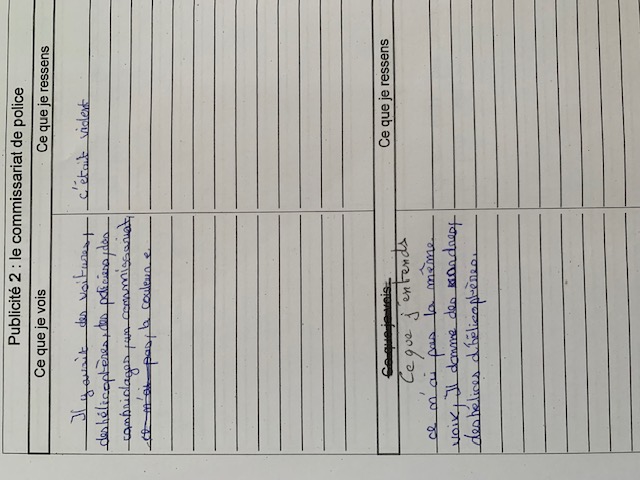 Publicité 2 : le commissariat de police
Ce que je vois
Ce que je ressens
Il y avait des voitures,
des hélicoptères, des policiers, des
cambriolages, un commissariat,
ce n'ai pas, la couleur
c'était violent
Ce que je vois
Ce que j'entends
Ce que je ressens
ce n'ai pas la même
voix, Il donne des
des hélices d'hélicoptères.